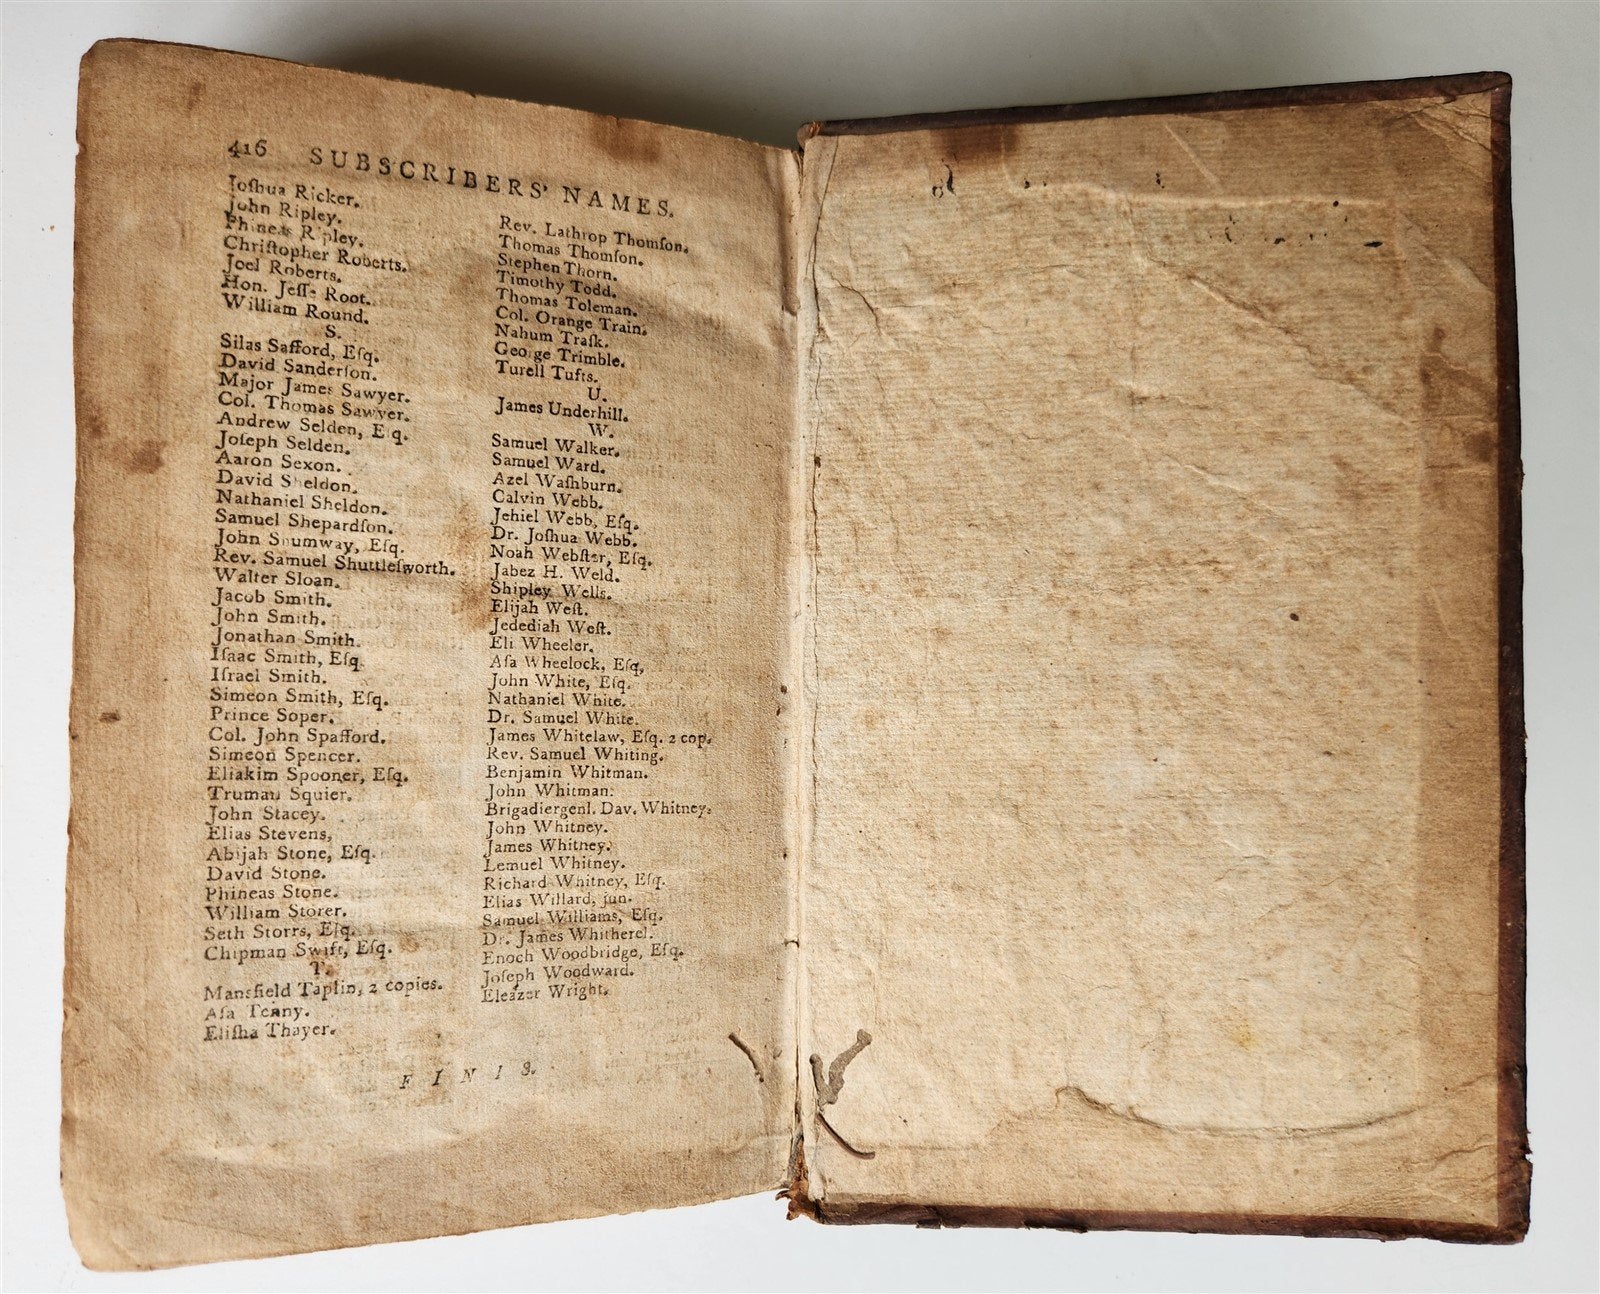 416 SUBSCRIBERS' NAMES.
Joſhua Ricker.
John Ripley.
Phineas Ripley.
Chriſtopher Roberts.
Joel Roberts.
Hon. Jeſſe Root.
William Round.
S.
Silas Safford, Eſq.
David Sanderſon.
Major James Sawyer.
Col. Thomas Sawyer.
Andrew Selden, Eſq.
Joſeph Selden.
Aaron Sexon.
David Sheldon.
Nathaniel Sheldon.
Samuel Shepardſon.
John Shumway, Eſq.
Rev. Samuel Shuttleſworth.
Walter Sloan.
Jacob Smith.
John Smith.
Jonathan Smith.
Iſaac Smith, Eſq.
Iſrael Smith.
Simeon Smith, Eſq.
Prince Soper.
Col. John Spafford.
Simeon Spencer.
Eliakim Spooner, Eſq.
Truman Squier.
John Stacey.
Elias Stevens,
Abijah Stone, Eſq.
David Stone.
Phineas Stone.
William Storer.
Seth Storrs, Eſq.
Chipman Swift, Eſq.
T.
Mansfield Taplin, 2 copies.
Aſa Tenny.
Eliſha Thayer.
Rev. Lathrop Thomſon.
Thomas Thomſon.
Stephen Thorn.
Timothy Todd.
Thomas Toleman.
Col. Orange Train.
Nahum Traſk.
George Trimble.
Turell Tufts.
U.
James Underhill.
W.
Samuel Walker.
Samuel Ward.
Azel Waſhburn.
Calvin Webb.
Jehiel Webb, Eſq.
Dr. Joſhua Webb.
Noah Webſter, Eſq.
Jabez H. Weld.
Shipley Wells.
Elijah Weſt.
Jedediah Weſt.
Eli Wheeler.
Aſa Wheelock, Eſq.
John White, Eſq.
Nathaniel White.
Dr. Samuel White.
James Whitelaw, Eſq. 2 cop.
Rev. Samuel Whiting.
Benjamin Whitman.
John Whitman.
Brigadiergenl. Dav. Whitney.
John Whitney.
James Whitney.
Lemuel Whitney.
Richard Whitney, Eſq.
Elias Willard, jun.
Samuel Williams, Eſq.
Dr. James Whitherel.
Enoch Woodbridge, Eſq.
Joſeph Woodward.
Eleazer Wright.
F I N I S.